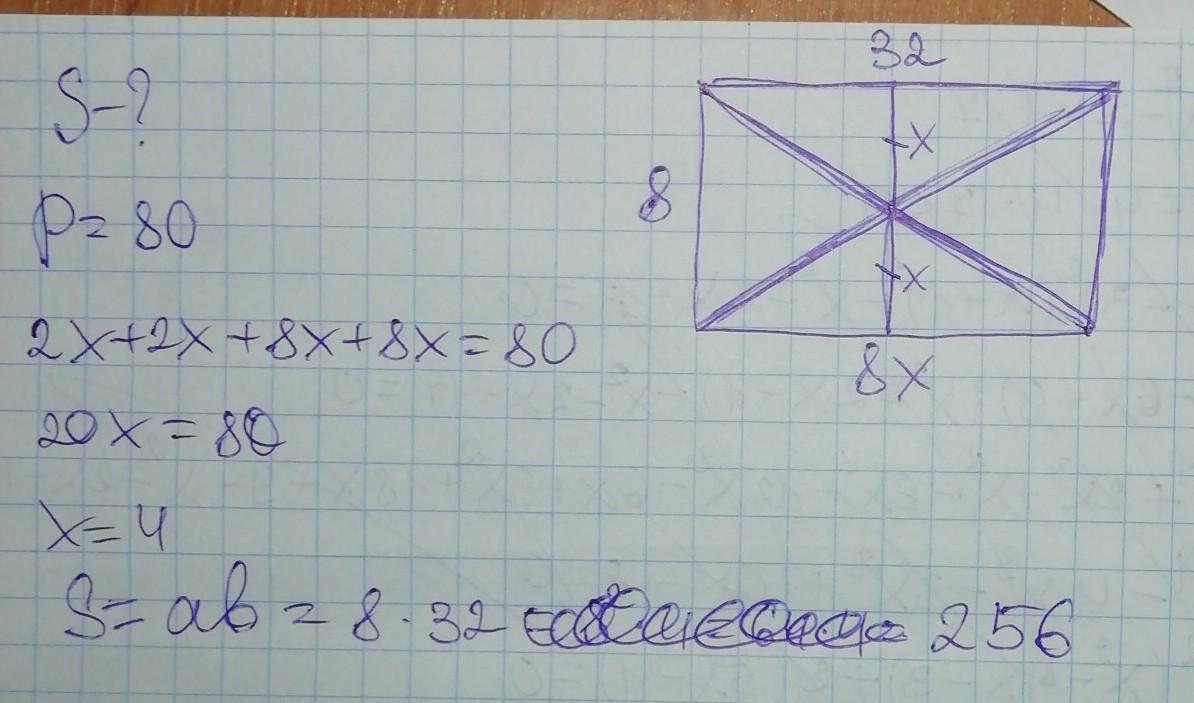 S-?
P=80
2x+2x+8x+8x=80
20x=80
x=4
S=ab=8·32 = 256
32
x
8
x
8x